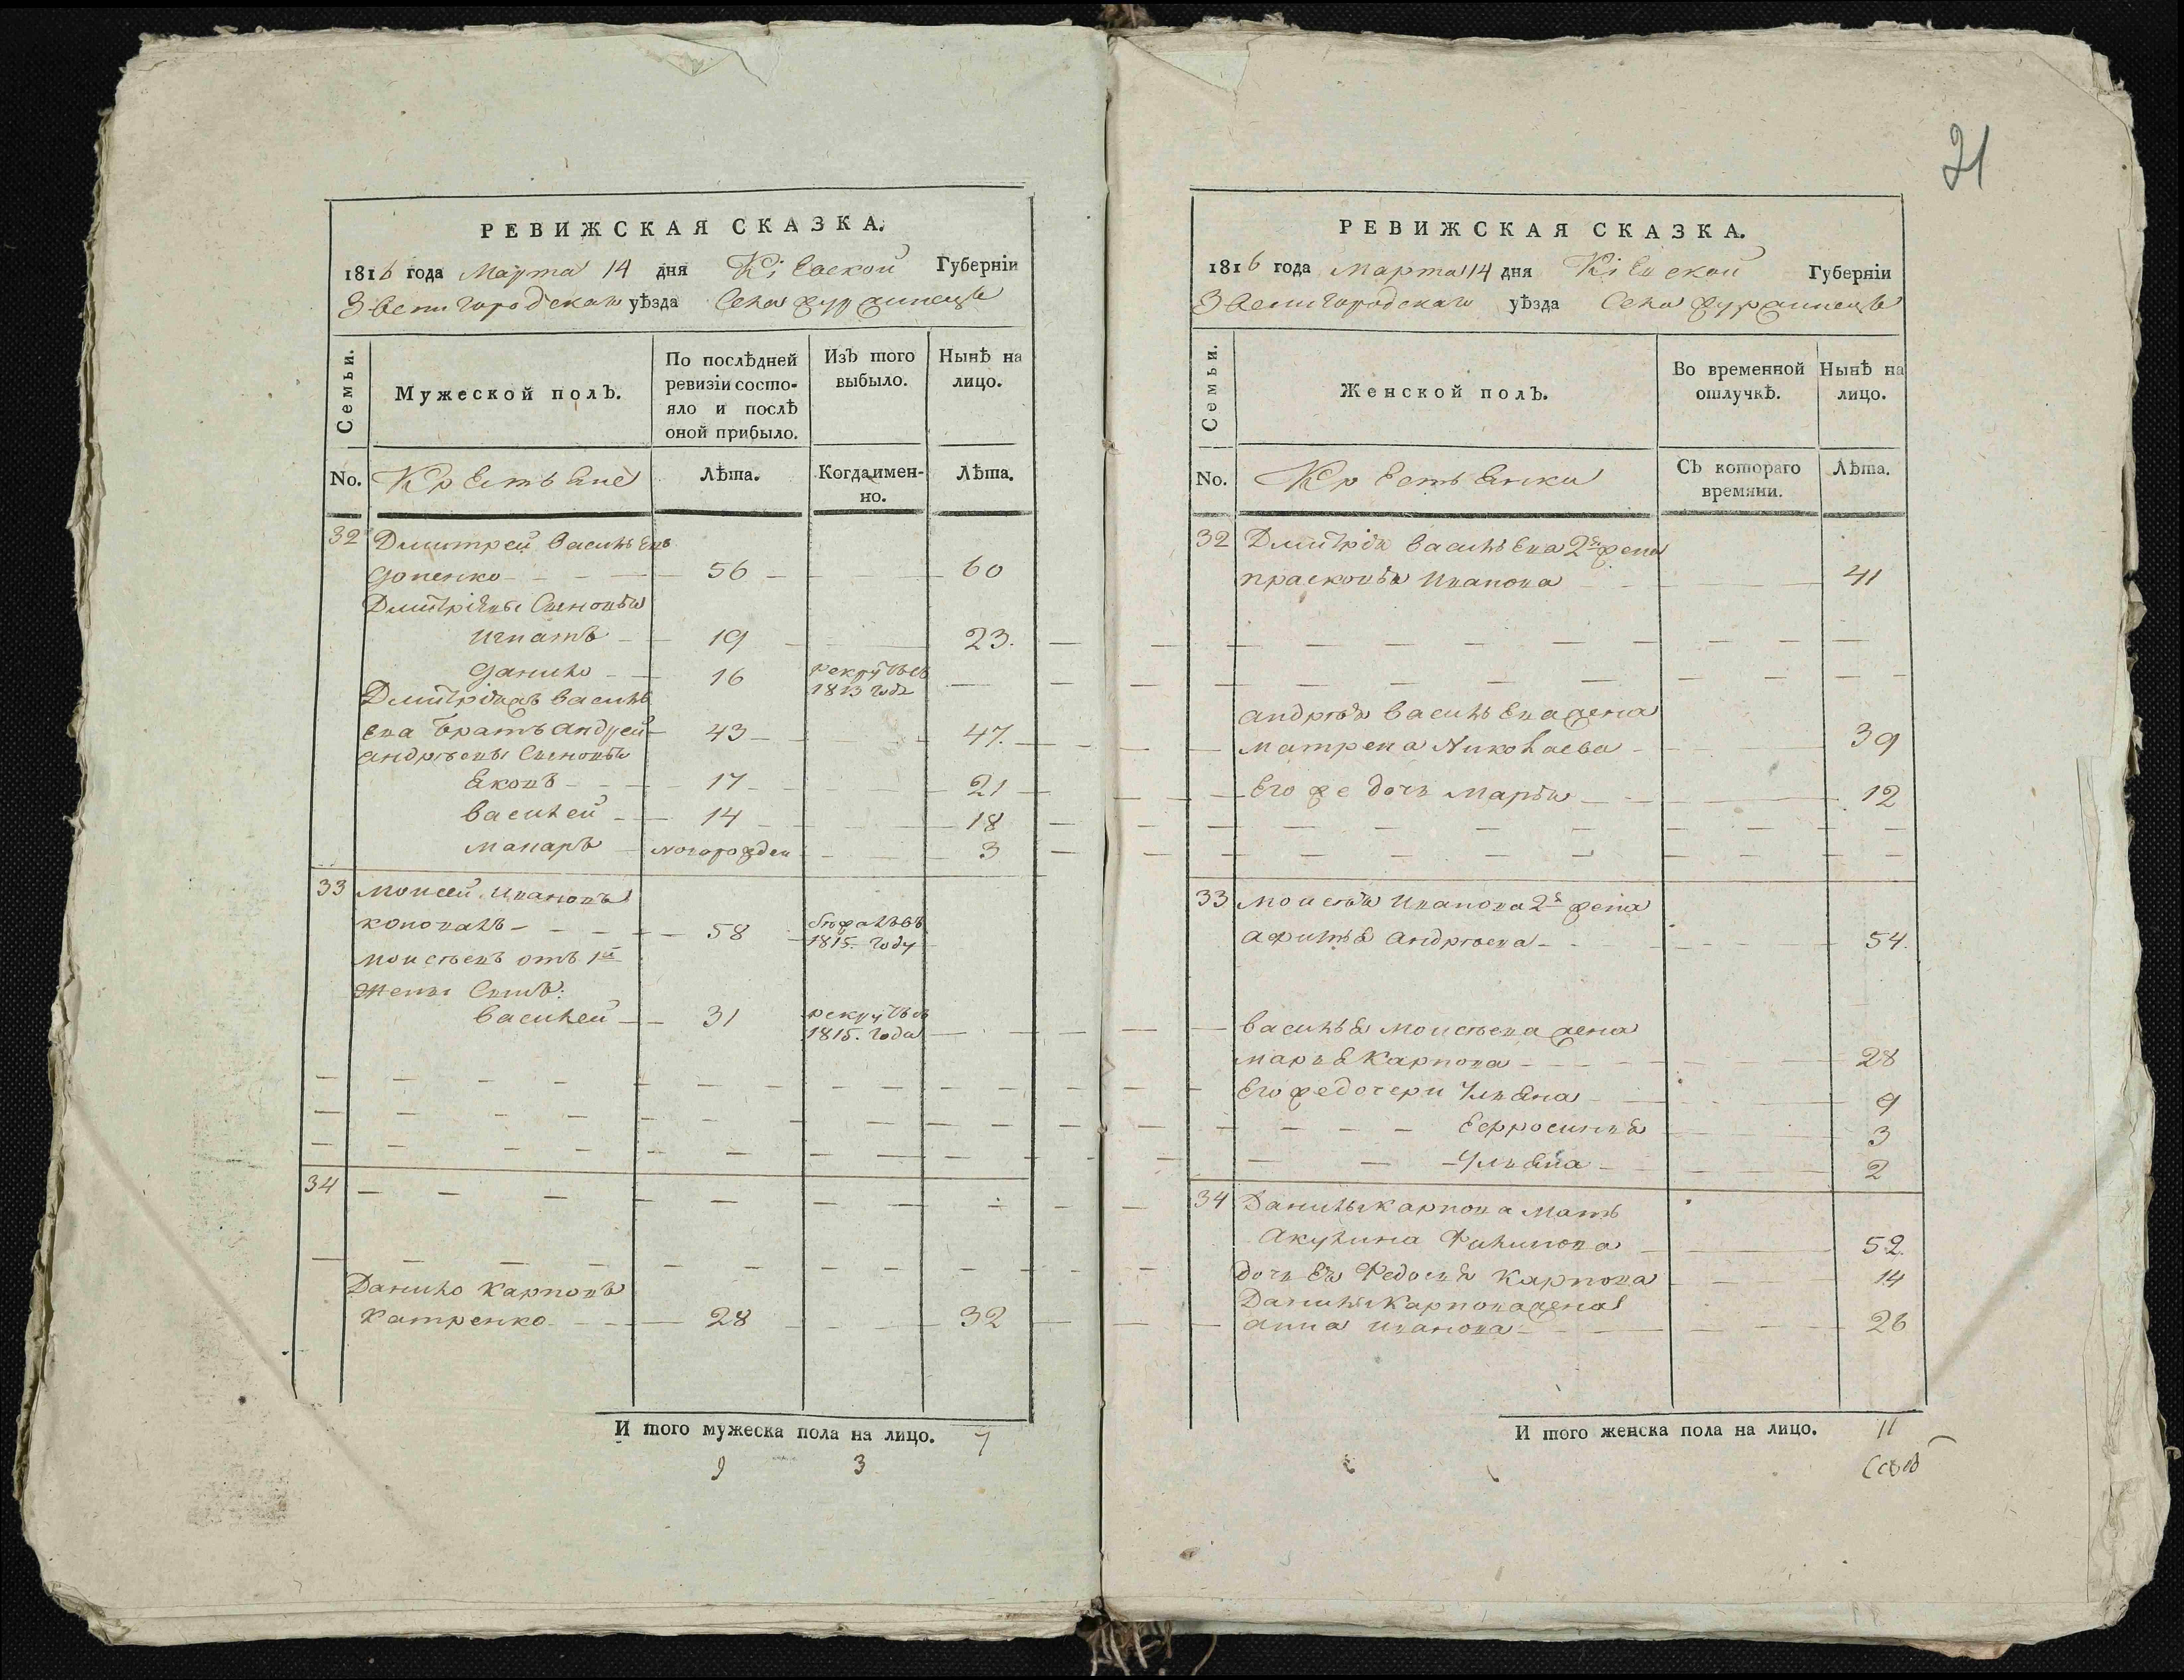 РЕВИЖСКАЯ СКАЗКА.
1816 года Марта 14 дня Кіевской Губерніи
Звенигородскаго уѣзда Села Журжинецъ
Семьи.
Мужеской полъ.
По послѣдней ревизіи состояло и послѣ оной прибыло.
Изъ того выбыло.
Нынѣ на лицо.
No. Крестьяне Лѣта. Когда имянно. Лѣта.
32 Дмитрей Васильевъ
Допенко 56 60
Дмитріевы Сыновья
Игнатъ 19 23.
Данило 16 рекрутъ въ 1813 годе
Дмитрія Василь
ева Братъ Андрей 43 47.
Андреевы Сыновья
Яковъ 17 21
Василей 14 18
Макаръ новорожден 3
33 Моисей Ивановъ
Коновалъ 58 бѣжалъ въ 1815. году
Моисѣевъ отъ 1й
жены Сынъ:
Василей 31 рекрутъ въ 1815. года
34
Данило Карповъ
Катренко 28 32
И того мужеска пола на лицо. 7
9 3
21
РЕВИЖСКАЯ СКАЗКА.
1816 года Марта 14 дня Кіевской Губерніи
Звенигородскаго уѣзда Села Журжинецъ
Семьи.
Женской полъ.
Во временной отлучкѣ.
Нынѣ на лицо.
No. Крестьянки Съ котораго времяни. Лѣта.
32 Дмитрія Васильева 2я жена
Прасковья Иванова 41
Андрея Васильева жена
Матрена Николаева 39
Его же дочь Марья 12
33 Моисѣя Иванова 2я жена
Афимья Андреева 54.
Василья Моисѣева жена
Марья Карпова 28
Его же дочери Ульяна 9
Ефросинья 3
Ульяна 2
34 Данилы Карпова Мать
Акулина Филипова 52.
дочь Ея Федосья Карпова 14
Данилы Карпова жена
Анна Иванова 26
И того женска пола на лицо. 11